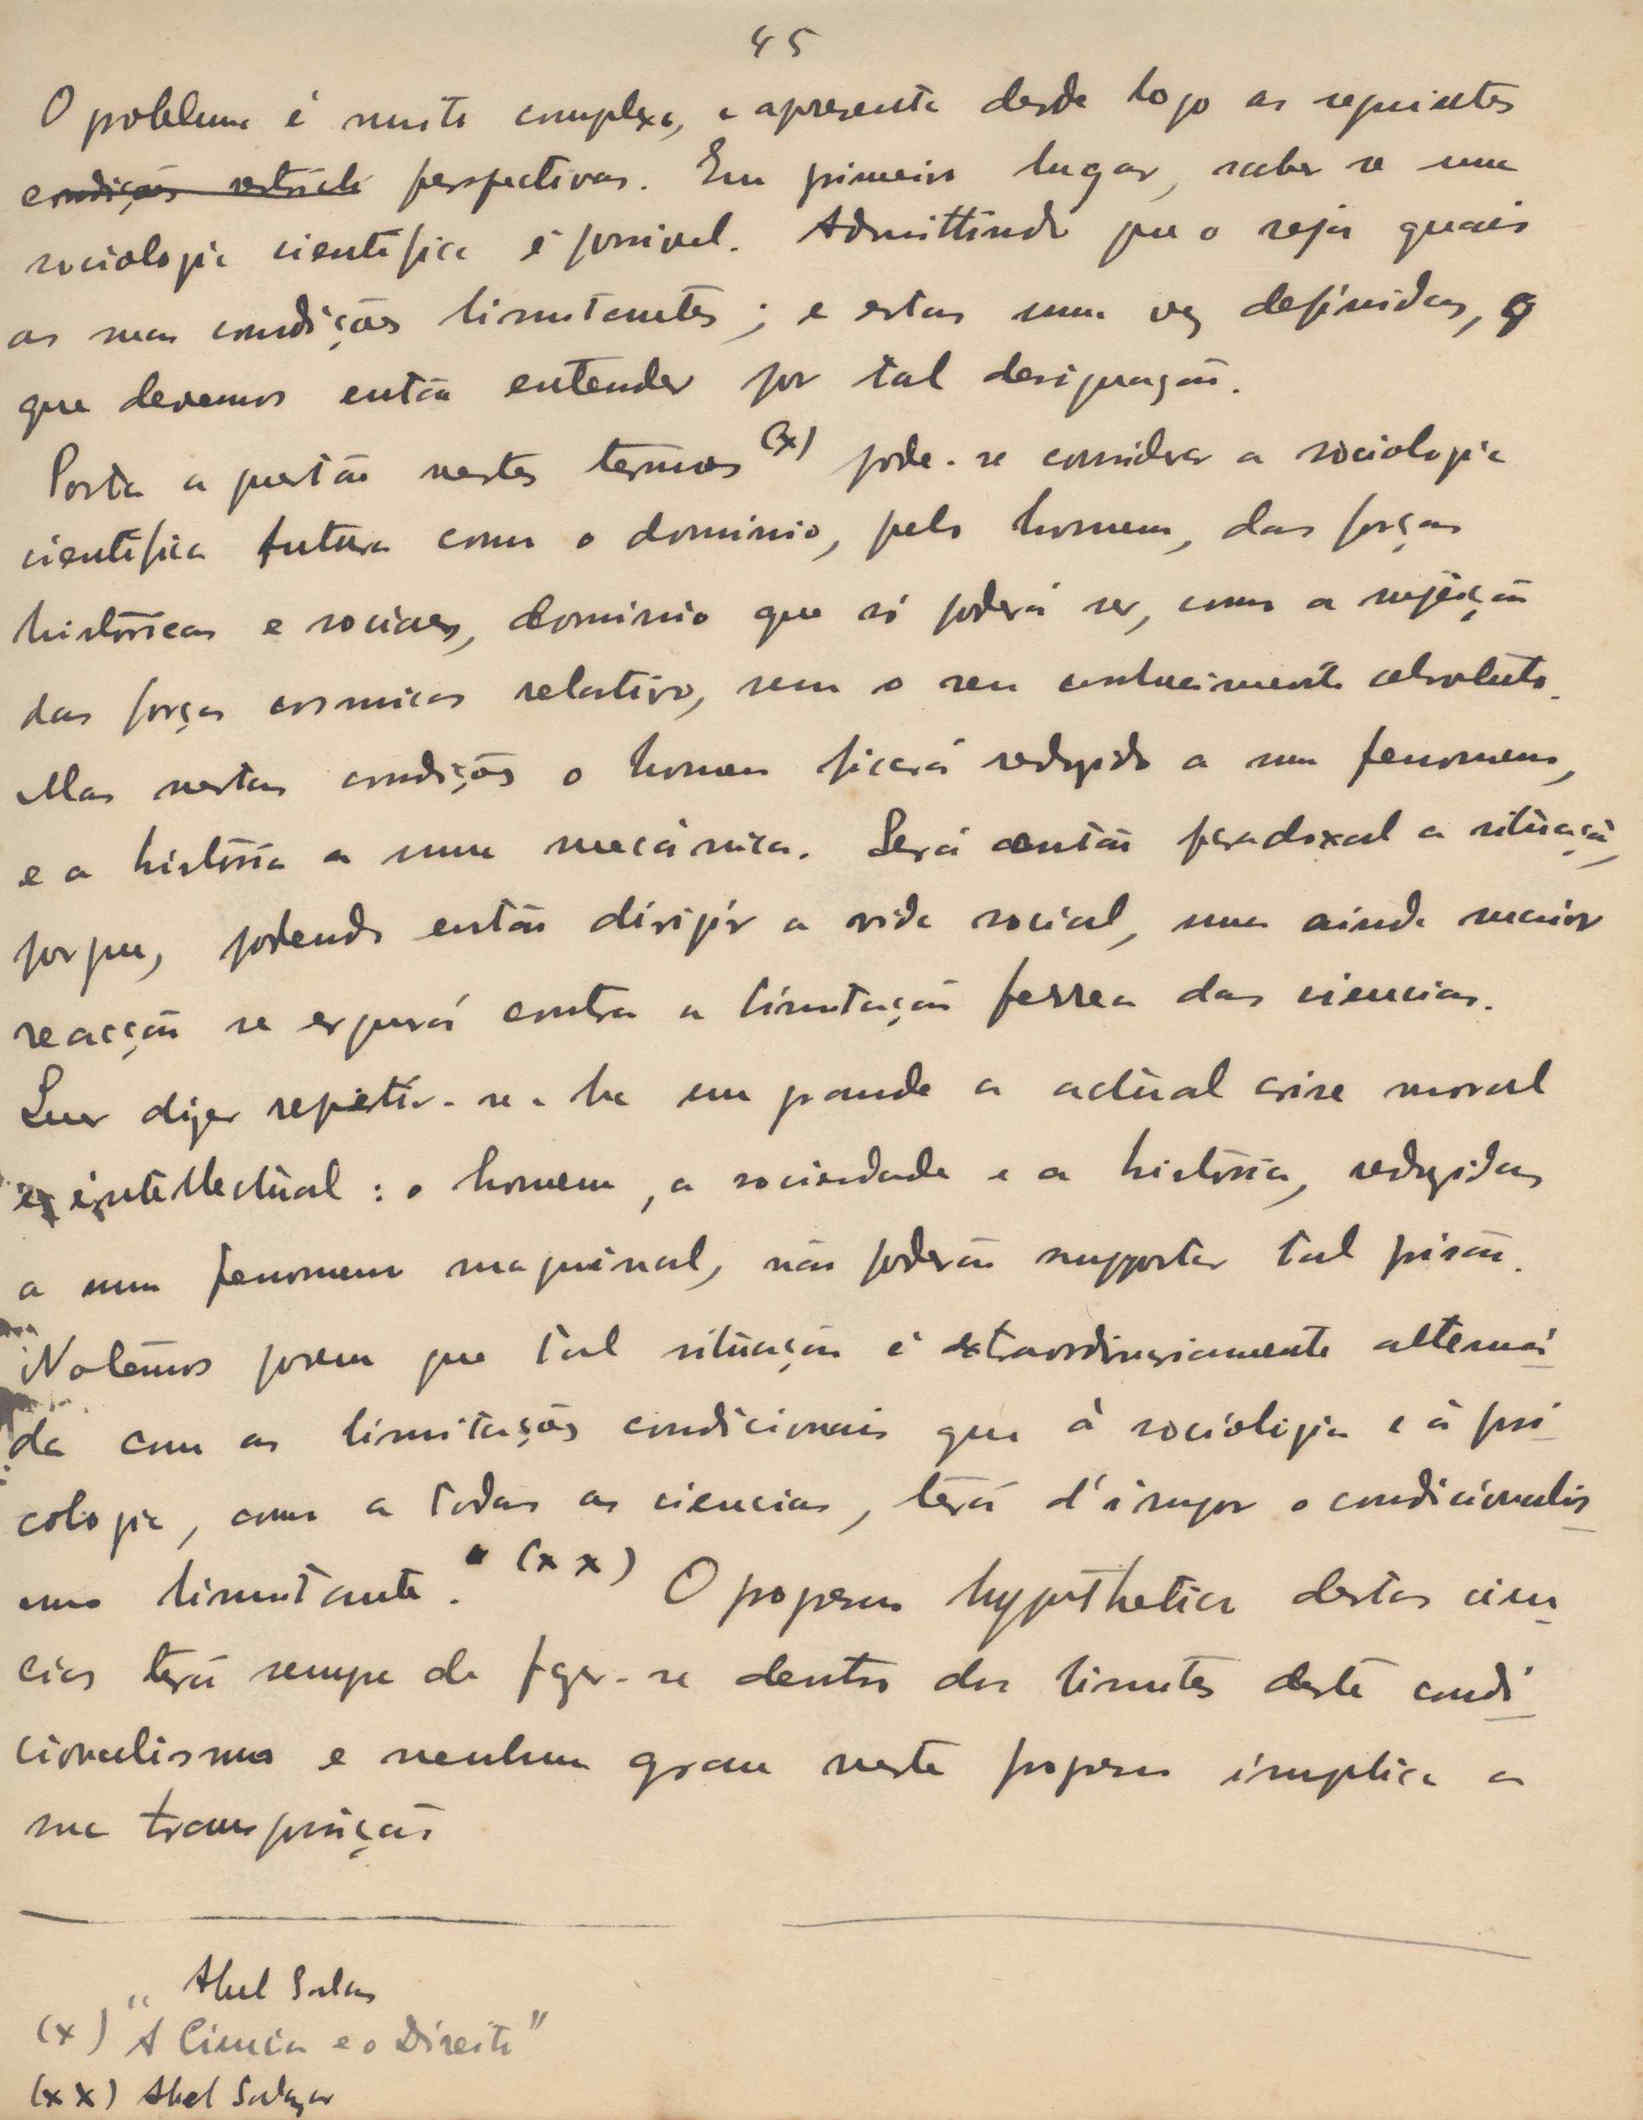 45
O problema é muito complexo, e apresenta desde logo as seguintes
condições perspectivas. Em primeiro lugar, saber se uma
sociologia scientifica é possivel. Admittindo que o seja quais
as suas condições limitantes; e estas uma vez definidas, o
que devemos então entender por tal designação.
Posta a questão nestes termos (x) pode-se considerar a sociologia
scientifica futura como o dominio, pelo homem, das forças
históricas e sociaes, dominio que só poderá ser, como a sujeição
das forças cosmicas relativo, sem o seu conhecimento absoluto.
Mas nestas condições o homem ficará reduzido a um fenomeno,
e a história a uma mecánica. Será então paradoxal a situação,
porque, podendo então dirigir a vida social, uma ainda maior
reacção se erguerá contra a limitação ferrea das ciencias.
Quer dizer repetir-se-ha em grande a actual crise moral
e intellectual: o homem, a sociedade e a história, reduzidas
a um fenomeno maquinal, não poderão supportar tal prisão.
Notêmos porem que tal situação é extraordinariamente attenuá
da com as limitações condicionais que á sociologia e á psi
cologia, como a todas as ciencias, terá d'impor o condicionalis
mo limitante. (xx) O progresso hypothetico destas cien
cias terá sempre de fazer-se dentro dos limites deste condi
cionalismo e nenhum grau neste progresso implica a
sua transposição
Abel Salazar
(x) "A Ciencia e o Direito"
(xx) Abel Salazar